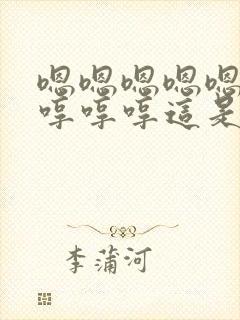 嗯嗯嗯嗯嗯
哼哼哼這是
李蒲河